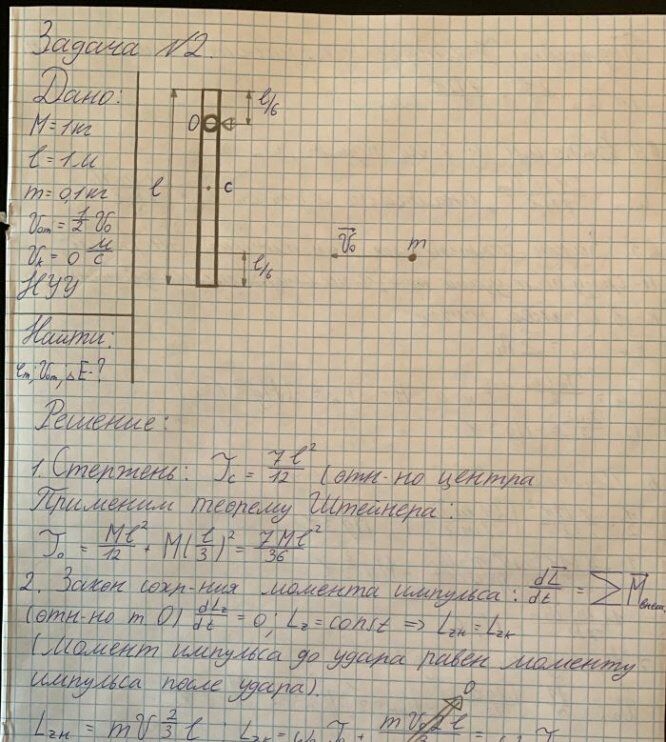 Задача №2.
Дано:
M = 1 кг
l = 1 м
m = 0,1 кг
V₀m = 1/2 V₀
Vк = 0 м/с
НУУ
Найти:
V₀m; ΔE-?
l/6
O
l
C
l/6
V⃗₀
m
Решение:
1. Стержень: Jc = 7l²/12 (отн-но центра
Применим теорему Штейнера:
J₀ = Ml²/12 + M(l/3)² = 7Ml²/36
2. Закон сохр-ния момента импульса: dL⃗/dt = ∑M⃗внеш.
(отн-но т O) dLz/dt = 0; Lz = const => Lzн = Lzк
(Момент импульса до удара равен моменту
импульса после удара).
Lzн = mV 2/3 l